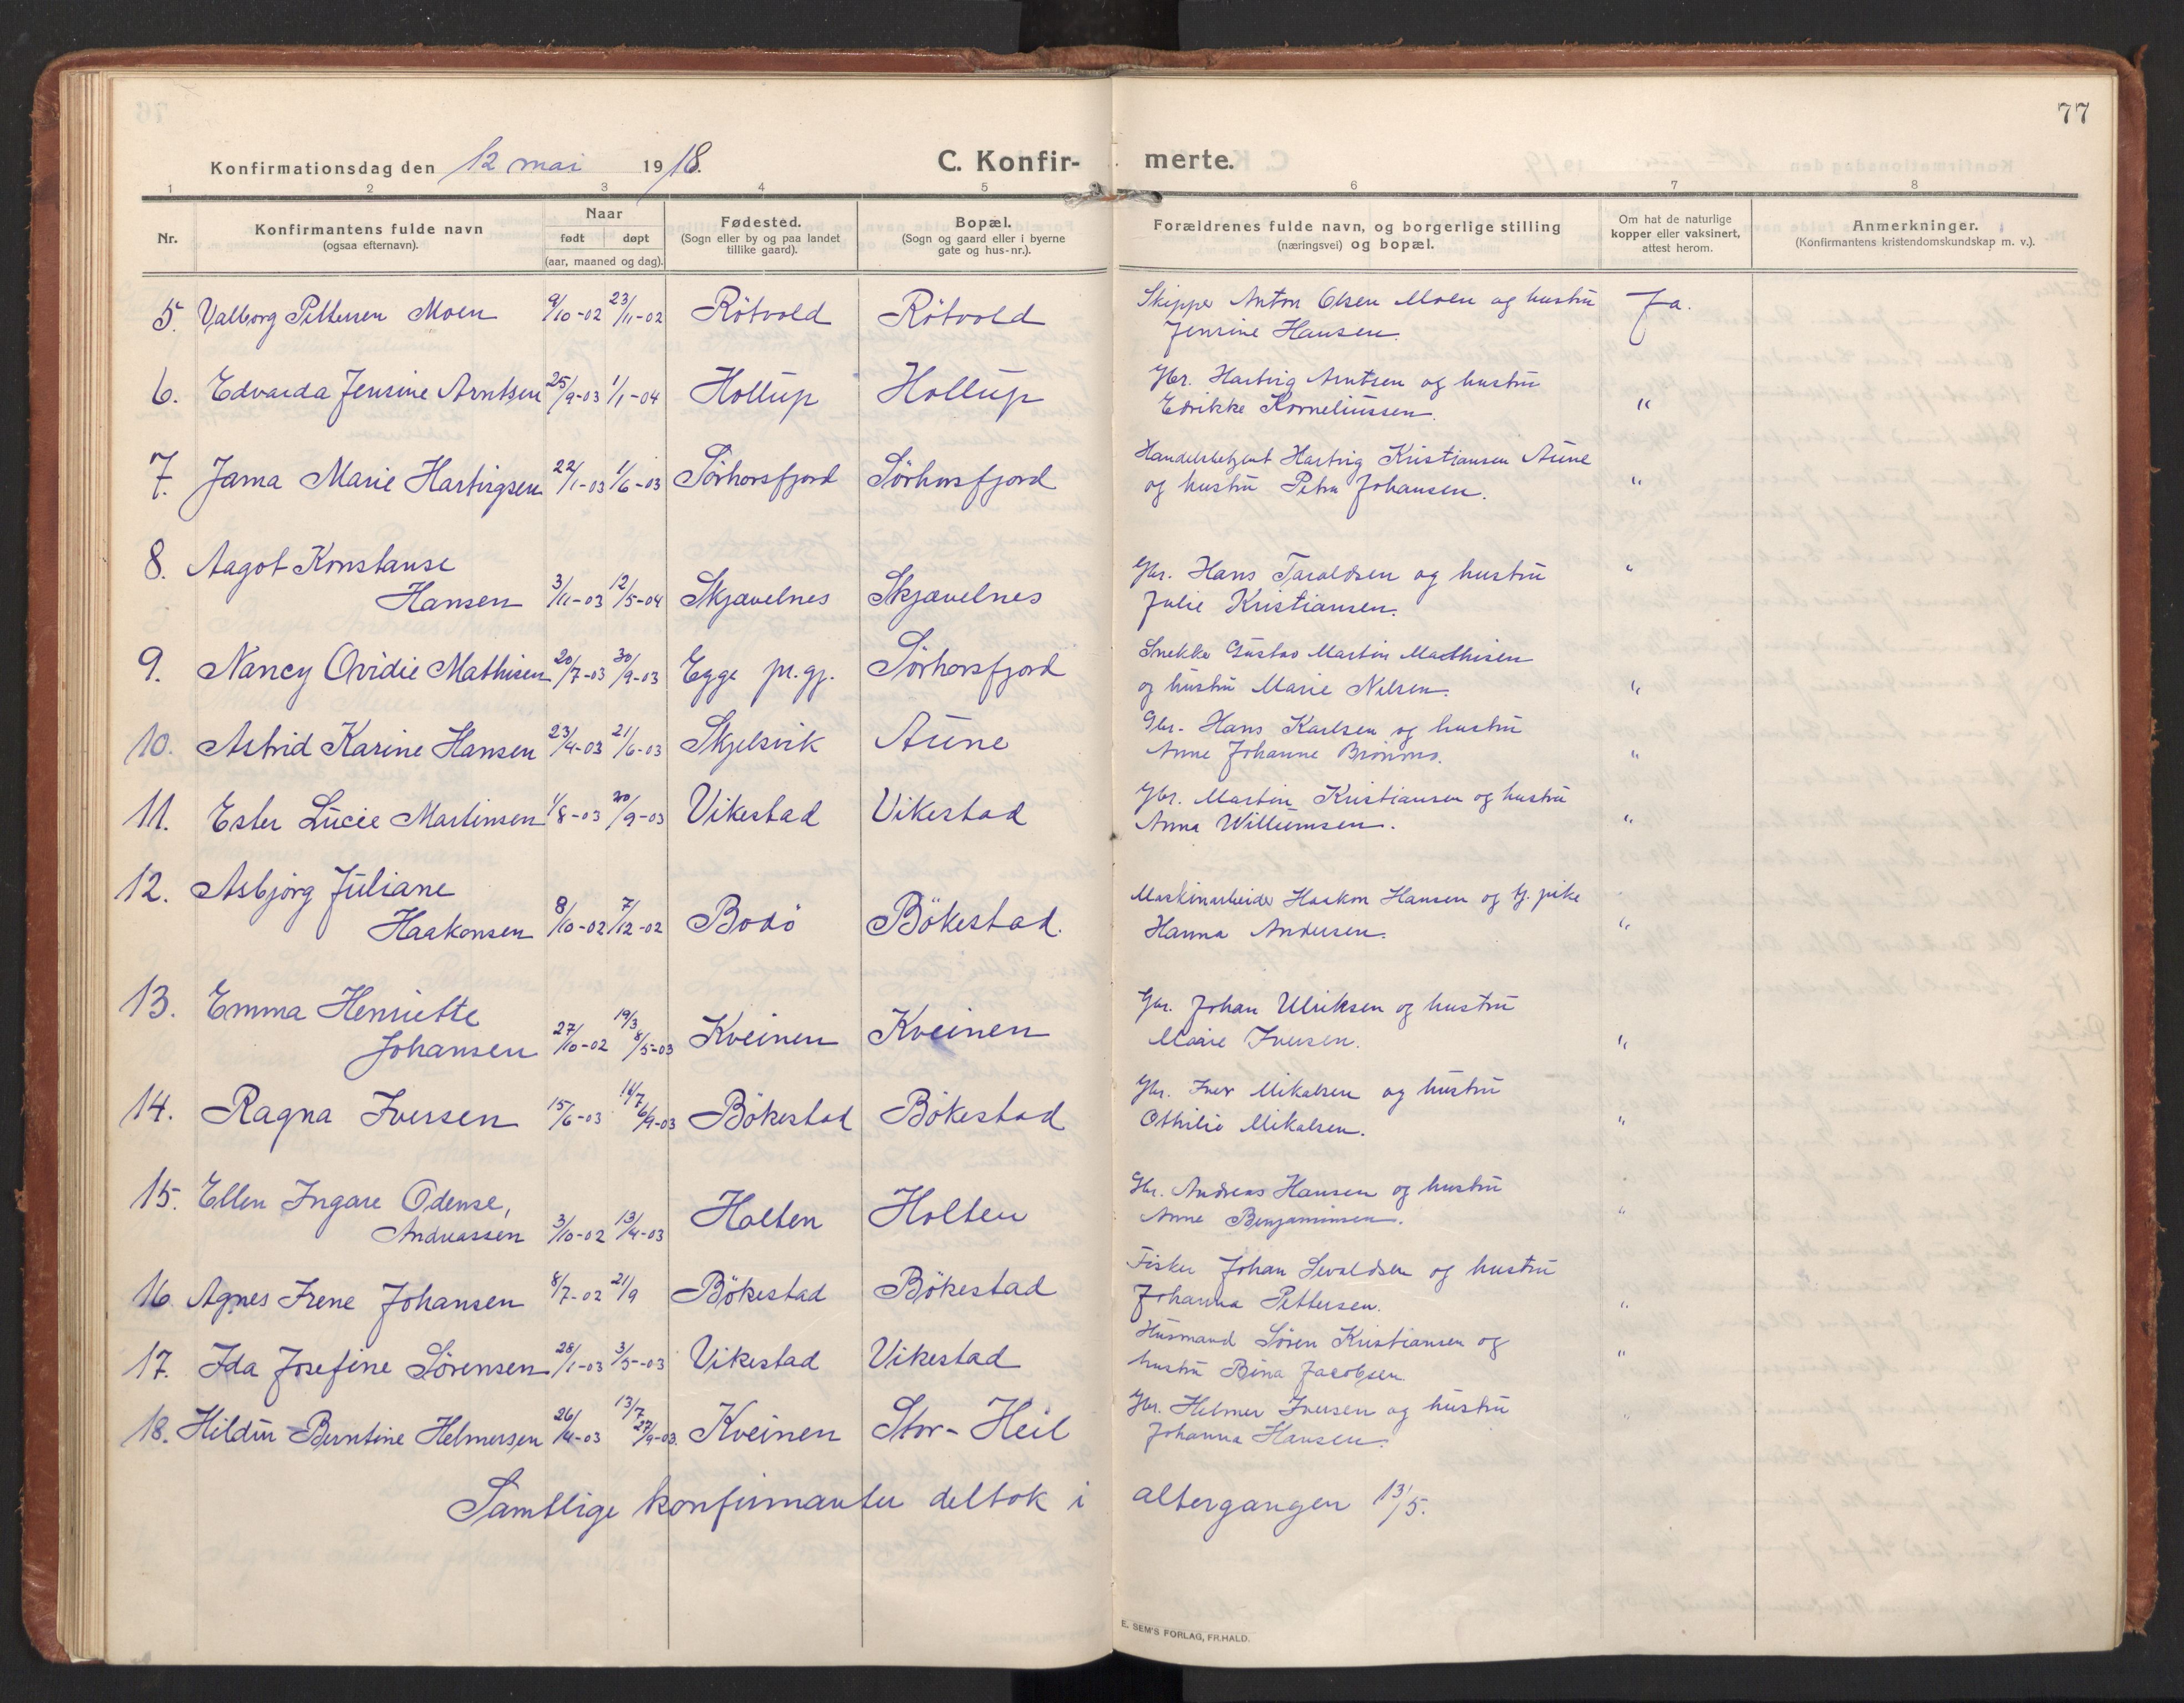 77
Konfirmationsdag den 12 mai 1918.
C. Konfir-
merte.
1 2 3 4 5 6 7 8
Nr.
Konfirmantens fulde navn
(ogsaa efternavn).
Naar
født døpt
(aar, maaned og dag).
Fødested.
(Sogn eller by og paa landet
tillike gaard).
Bopæl.
(Sogn og gaard eller i byerne
gate og hus-nr.).
Forældrenes fulde navn, og borgerlige stilling
(næringsvei) og bopæl.
Om hat de naturlige
kopper eller vaksinert,
attest herom.
Anmerkninger.
(Konfirmantens kristendomskundskap m. v.).
5. Valborg Pettersen Moen 9/10-02 23/11-02 Rötvold Rötvold Skipper Anton Olsen Moen og hustru Ja.
Jensine Hansen.
6. Edvarda Jensine Arntsen 25/9-03 1/1-04 Hollup Hollup Gbr. Hartvig Arntsen og hustru
Edrikke Korneliussen. "
7. Jama Marie Hartvigsen 22/1-03 1/6-03 Sörhorsfjord Sörhorsfjord Handelsbetjent Hartvig Kristiansen Aune
og hustru Petra Johansen. "
8. Aagot Konstanse
Hansen 3/11-03 12/5-04 Skjævelnes Skjævelnes Gbr. Hans Taraldsen og hustru "
Julie Kristiansen.
9. Nancy Ovidie Mathisen 20/7-03 30/9-03 Egge pr.gj. Sörhorsfjord Snekker Gustav Martin Mathisen
og hustru Marie Nilsen. "
10. Astrid Karine Hansen 23/4-03 21/6-03 Skjelsvik Aune Gbr. Hans Karlsen og hustru
Anne Johanne Brönmo. "
11. Ester Lucie Martinsen 1/8-03 20/9-03 Vikestad Vikestad Gbr. Martin Kristiansen og hustru
Anna Willumsen. "
12. Asbjörg Juliane
Haakonsen 8/10-02 7/12-02 Bodö Bökestad. Maskinarbeider Haakon Hansen og tj. pike
Hanna Andersen. "
13. Emma Henriette
Johansen 27/10-02 19/3 8/5-03 Kveinen Kveinen Gbr. Johan Ulriksen og hustru
Marie Iversen. "
14. Ragna Iversen 15/6-03 16/7 6/9-03 Bökestad Bökestad Gbr. Iver Mikalsen og hustru
Othilie Mikalsen. "
15. Ellen Ingare Odense,
Andreassen 3/10-02 13/4-03 Holten Holten Gbr. Andreas Hansen og hustru
Anne Benjaminsen. "
16. Agnes Irene Johansen 8/7-02 21/9 Bökestad Bökestad Fisker Johan Sevaldsen og hustru
Johanna Pettersen. "
17. Ida Josefine Sörensen 28/1-03 3/5-03 Vikestad Vikestad Husmand Sören Kristiansen og "
hustru Bina Jacobsen
18. Hildur Berntine Helmersen 26/4-03 13/7 27/9-03. Kveinen Stor-Heil Gbr. Helmer Iversen og hustru "
Johanna Hansen.
Samtlige konfirmanter deltok i altergangen 13/5.
E. SEM'S FORLAG, FR.HALD.